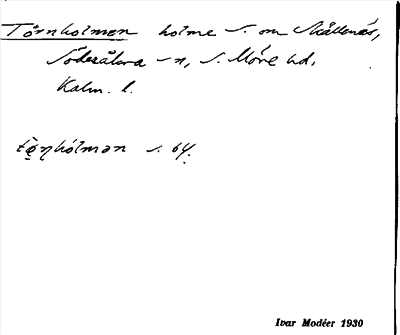 Törnholmen holme s. om Skällenäs,
Söderåkra sn, S. Möre hd,
Kalm. l.
tö̀ṇhólmən s. 64.
Ivar Modéer 1930